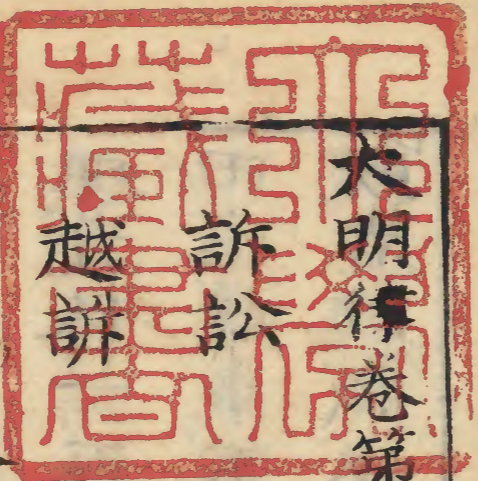 大明律卷第
訴訟
越訴
藏書